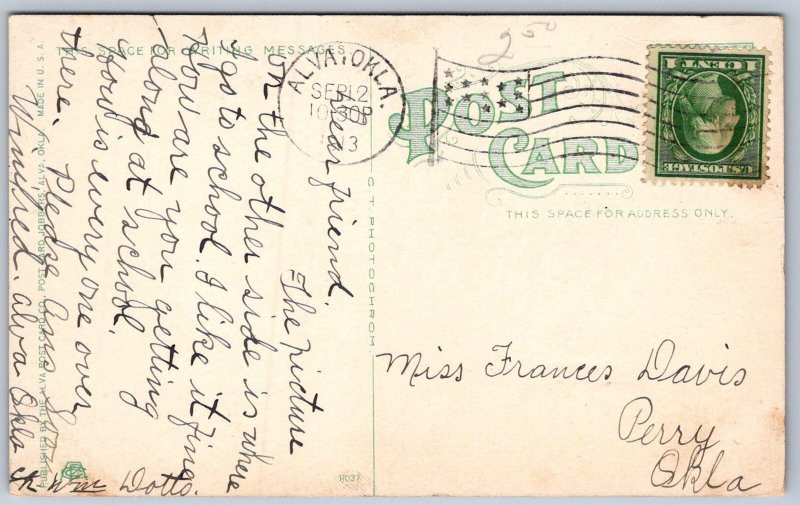 THIS SPACE FOR WRITING MESSAGES
Dear friend,
The picture
on the other side is where
I go to school. I like it fine
How are you getting
along at school.
How is every one over
there. Please Ans
Winifred. Alva Okla
Wm Dotts.
PUBLISHED BY THE ALVA POST CARD CO. POST CARD JOBBERS, ALVA, OKLA. MADE IN U.S.A.
C T PHOTOCHROM
2 50
ALVA, OKLA.
SEP 12
POST
CARD
U.S. POSTAGE
1 CENT 1
THIS SPACE FOR ADDRESS ONLY.
Miss Frances Davis
Perry
Okla